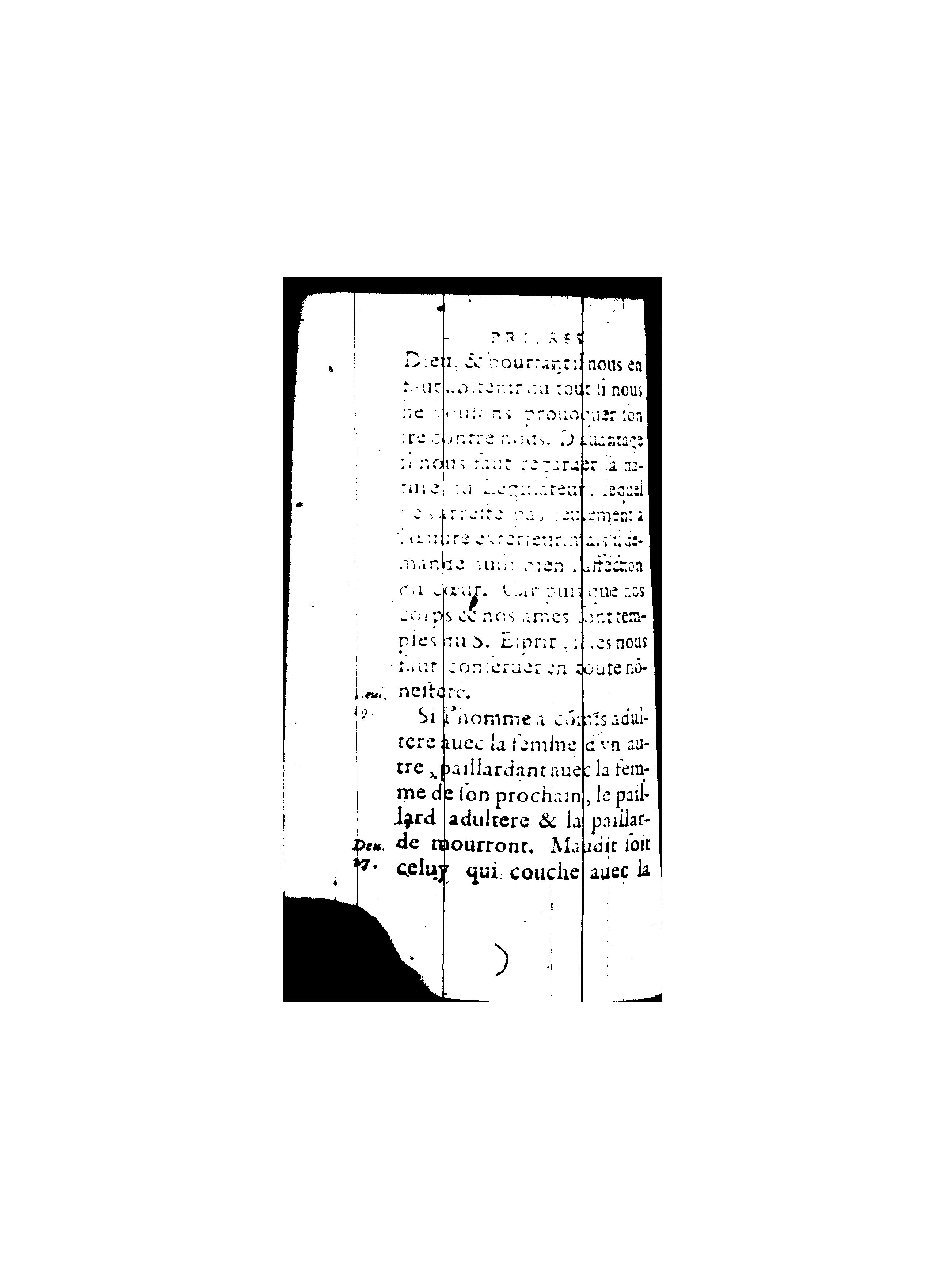 Dieu, & pourtant il nous en
faut du tout si nous
ne prouoquer son
ire contre nous. D'auantage
il nous faut regarder la na-
ture du Legislateur, lequel
ne s'arreste pas seulement à
exterieur, mais de-
mande aussi bien l'affection
du cœur. Car puis que nos
corps & nos ames sont tem-
ples du S. Esprit, il les nous
faut conseruer en toute hõ-
nesteté.
Si l'homme a cõmis adul-
tere auec la femme d'vn au-
tre, paillardant auec la fem-
me de son prochain, le pail-
lard adultere & la paillar-
Deu. de mourront. Maudit soit
27. celuy qui couche auec la